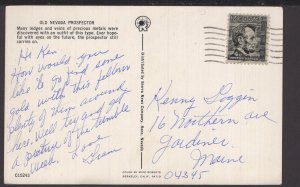 OLD NEVADA PROSPECTOR
Many ledges and veins of precious metals were
discovered with an outfit of this type. Ever hope-
ful with eyes on the future, the prospector still
carries on.
Hi Ken
How would you
like to go find some
gold with this fellow
plenty of them around
here. Will try and get
a picture of the tumble
weed. Love
Gram
015245
Distributed by Sierra News Company, Reno, Nevada
COLOR BY MIKE ROBERTS
BERKELEY, CALIF. 94710
Kenny Goggin
16 Northern ave
Gardiner,
Maine
04345